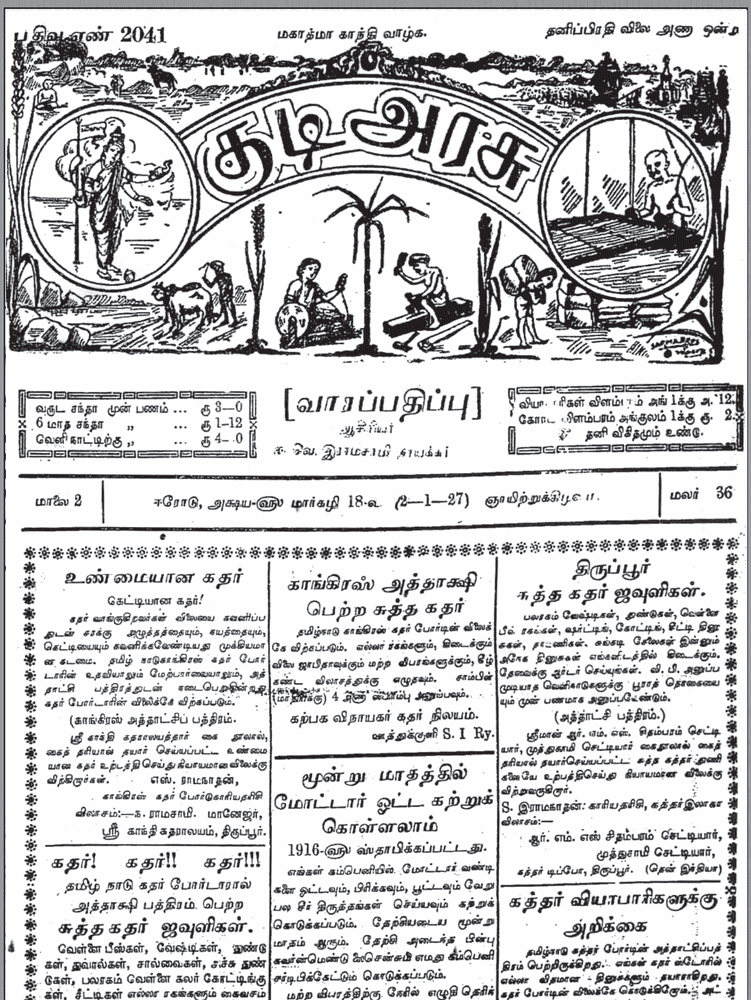 பதிவு எண் 2041
மகாத்மா காந்தி வாழ்க.
தனிப்பிரதி விலை அணா ஒன்று
குடி அரசு
வருட சந்தா முன் பணம் ... ரூ 3—0
6 மாத சந்தா ,, ... ரூ 1-12
வெளி நாட்டிற்கு ,, ... ரூ 4—0
[வாரப்பதிப்பு]
ஆசிரியர்
இராமசாமி நாயக்கர்
விளம்பரம் அங் 1க்கு அ. 12.
விளம்பரம் அங்குலம் 1க்கு ரூ. 2.
தனி விகிதமும் உண்டு.
மாலை 2
ஈரோடு, அக்ஷய-ஹு மார்கழி 18-உ (2—1—27) ஞாயிற்றுக்கிழமை.
மலர் 36
உண்மையான கதர்
கெட்டியான கதர்!
கதர் வாங்குகிறவர்கள் விலையை கவனிப்ப
துடன் சரக்கு அழுத்தத்தையும், சுயத்தையும்,
கெட்டியையும் கவனிக்கவேண்டியது முக்கியமா
ன கடமை. தமிழ் நாடுகாங்கிரஸ் கதர் போர்
டாரின் உதவியாலும் மேற்பார்வையாலும், அத்
தாட்சி பத்திரத்துடன் நடைபெறுகின்றது.
கதர் போர்டாரின் விலைக்கே விற்கப்படும்.
(காங்கிரஸ் அத்தாட்சிப் பத்திரம்.
ஸ்ரீ காந்தி கதராலயத்தார் கை நூலால்,
கைத் தறியால் தயார் செய்யப்பட்ட உண்மை
யான கதர் உற்பத்திசெய்து நியாயமானவிலைக்கு
விற்கிறார்கள். எஸ். ராமநாதன்,
காங்கிரஸ் கதர் போர்டுகாரியதரிசி
விலாசம்:—ந. ராமசாமி. மானேஜர்,
ஸ்ரீ காந்தி கதராலயம், திருப்பூர்.
கதர்! கதர்!! கதர்!!!
தமிழ் நாடு கதர் போர்டாரால்
அத்தாக்ஷி பத்திரம் பெற்ற
சுத்த கதர் ஜவுளிகள்.
வெள்ளை பீஸ்கள், வேஷ்டிகள், துண்டு
கள், துவால்கள், சால்வைகள், சரக்கு துண்
டுகள், பலரகம் வெள்ளை கலர் கோட்டிங்கு
கள், சீட்டிகள் எல்லா ரகங்களும் கைவசம்
காங்கிரஸ் அத்தாக்ஷி
பெற்ற சுத்த கதர்
தமிழ்நாடு காங்கிரஸ் கதர் போர்டின் விலைக்
கே விற்கப்படும். எல்லா ரகங்களும், கிடைக்கும்
விலை ஜாபிதாவுக்கும் மற்ற விபரங்களுக்கும், கீழ்
கண்ட விலாசத்துக்கு எழுதவும். சாம்பிள்
(மாதிரிக்கு) 4 அணா ஸ்டாம்பு அனுப்பவும்.
கற்பக விநாயகர் கதர் நிலையம்.
ஊத்துக்குளி S. I Ry.
மூன்று மாதத்தில்
மோட்டார் ஓட்ட கற்றுக்
கொள்ளலாம்
1916-ஹு ஸ்தாபிக்கப்பட்டது.
எங்கள் கம்பெனியில் மோட்டார் வண்டி
களை ஓட்டவும், பிரிக்கவும், பூட்டவும் வேறு
பல சிர் திருத்தங்கள் செய்யவும் கற்றுக்
கொடுக்கப்படும். தேற்சியடைய மூன்று
மாதம் ஆகும். தேற்சி அடைந்த பின்பு
கவர்ன்மெண்டு லைசென்சும் எமது கம்பெனி
சர்டிபிக்கேட்டும் கொடுக்கப்படும்.
மற்ற விபரத்திற்கு நேரில் எழுதி தெரிக்
திருப்பூர்
சுத்த கதர் ஜவுளிகள்.
பலரகம் வேஷ்டிகள், துண்டுகள், வெள்ளை
பீஸ் ரகங்கள், ஷர்ட்டிங், கோட்டிங், சீட்டி தினு
சுகள், தாவணிகள். சுங்கடி சேலைகள் இன்னும்
அநேக தினுசுகள் எங்களிடத்தில் கிடைக்கும்.
தேவைக்கு ஆர்டர் செய்யுங்கள். வி. பி. அனுப்ப
முடியாத வெளிநாடுகளுக்கு பூராத் தொகையை
யும் முன் பணமாக அனுப்பவேண்டும்.
(அத்தாட்சி பத்திரம்.)
ஸ்ரீமான் ஆர். எம். எஸ். சிதம்பரம் செட்டி
யார், முத்துசாமி செட்டியார் கைநூலால் கைத்
தறியால் தயார்செய்யப்பட்ட சுத்த கத்தர் துணி
களையே உற்பத்திசெய்து நியாயமான விலைக்கு
விற்றுவருகிறார்.
S. இராமநாதன்: காரியதரிசி, கத்தர்இலாகா
விலாசம்:—
ஆர். எம். எஸ் சிதம்பரம் செட்டியார்,
முத்துசாமி செட்டியார்,
கத்தர் டிப்போ, திருப்பூர். (தென் இந்தியா)
கத்தர் வியாபாரிகளுக்கு
அறிக்கை
தமிழ்நாடு கத்தர் போர்டின் அத்தாட்சிப்பத்
திரம் பெற்றிருக்கிறது. எங்கள் கதர் ஸ்டோரில்
எல்லா விதமான தினுசுக்களும் தயாராகிறது.
கத்தர் போர்டின் விலைக்கே கொடுக்கிறோம்.